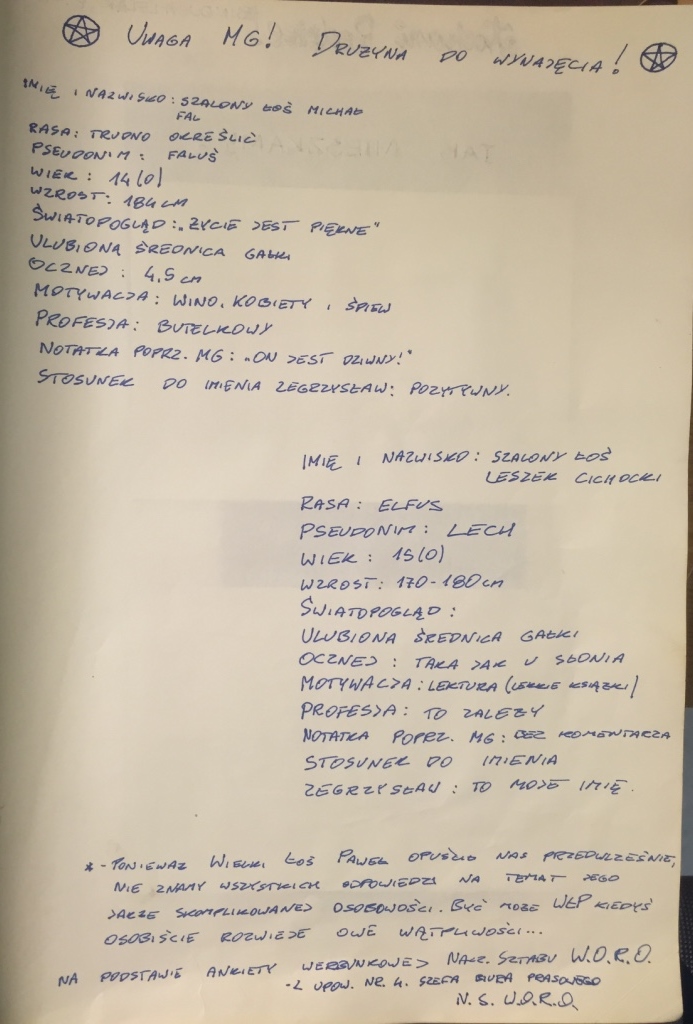 UWAGA MG! DRUŻYNA DO WYNAJĘCIA!
IMIĘ I NAZWISKO: SZALONY ŁOŚ MICHAŁ
FAL
RASA: TRUDNO OKREŚLIĆ
PSEUDONIM: FALUŚ
WIEK: 14(0)
WZROST: 184 CM
ŚWIATOPOGLĄD: „ŻYCIE JEST PIĘKNE"
ULUBIONA ŚREDNICA GAŁKI
OCZNEJ: 4,5 CM
MOTYWACJA: WINO, KOBIETY I ŚPIEW
PROFESJA: BUTELKOWY
NOTATKA POPRZ. MG: „ON JEST DZIWNY!"
STOSUNEK DO IMIENIA ZEGRZYSŁAW: POZYTYWNY.
IMIĘ I NAZWISKO: SZALONY ŁOŚ
LESZEK CICHOCKI
RASA: ELFUS
PSEUDONIM: LECH
WIEK: 15(0)
WZROST: 170-180 CM
ŚWIATOPOGLĄD:
ULUBIONA ŚREDNICA GAŁKI
OCZNEJ: TAKA JAK U SŁONIA
MOTYWACJA: LEKTURA (LEKKIE KSIĄŻKI)
PROFESJA: TO ZALEŻY
NOTATKA POPRZ. MG: BEZ KOMENTARZA
STOSUNEK DO IMIENIA
ZEGRZYSŁAW: TO MOJE IMIĘ.
* - PONIEWAŻ WIELKI ŁOŚ PAWEŁ OPUŚCIŁ NAS PRZEDWCZEŚNIE,
NIE ZNAMY WSZYSTKICH ODPOWIEDZI NA TEMAT JEGO
JAKŻE SKOMPLIKOWANEJ OSOBOWOŚCI. BYĆ MOŻE WŁP KIEDYŚ
OSOBIŚCIE ROZWIEJE OWE WĄTPLIWOŚCI...
NA PODSTAWIE ANKIETY WERBUNKOWEJ NACZ. SZTABU W.O.R.O.
- Z UPOW. NR. 4. SZEFA BIURA PRASOWEGO
N. S. W.O.R.O.